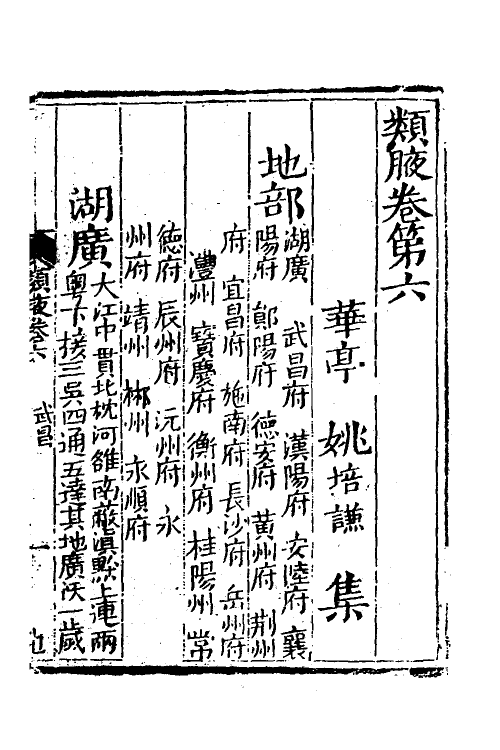 類腋卷第六
華亭 姚培謙 集
地部
湖廣 武昌府 漢陽府 安陸府 襄
陽府 鄖陽府 德安府 黄州府 荆州
府 宜昌府 施南府 長沙府 岳州府
澧州 寳慶府 衡州府 桂陽州 常
德府 辰州府 沅州府 永
州府 靖州 郴州 永順府
湖廣
大江中貫北枕河雒南蔽滇黔上連兩
粤下接三吳四通五達其地廣沃一歲
類腋卷六
武昌
一